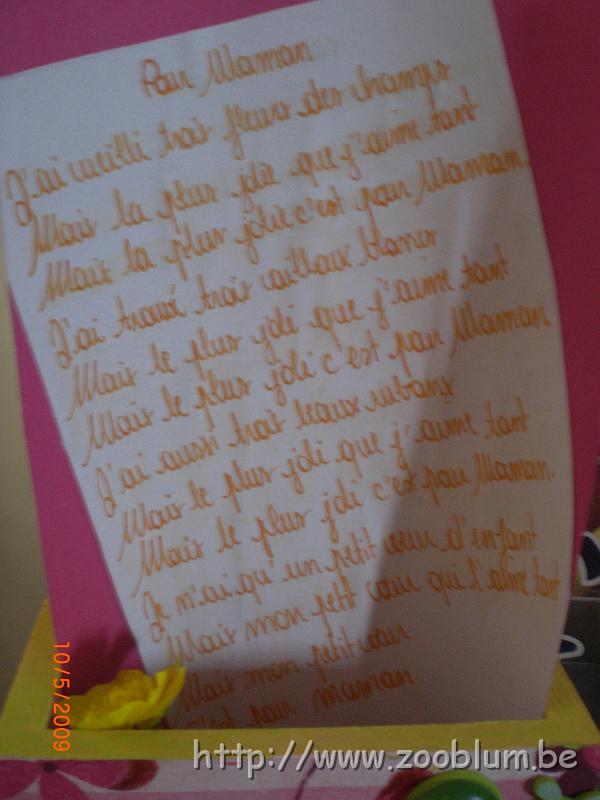 Pour Maman
J'ai cueilli trois fleurs des champs
Mais la plus jolie que j'aime tant
Mais la plus jolie c'est pour Maman.
J'ai trouvé trois cailloux blancs
Mais le plus joli que j'aime tant
Mais le plus joli c'est pour Maman
J'ai aussi trois beaux rubans
Mais le plus joli que j'aime tant
Mais le plus joli c'est pour Maman.
Je n'ai qu'un petit cœur d'enfant
Mais mon petit cœur qui l'aime tant
Mais mon petit cœur
c'est pour maman
10/5/2009
http://www.zooblum.be